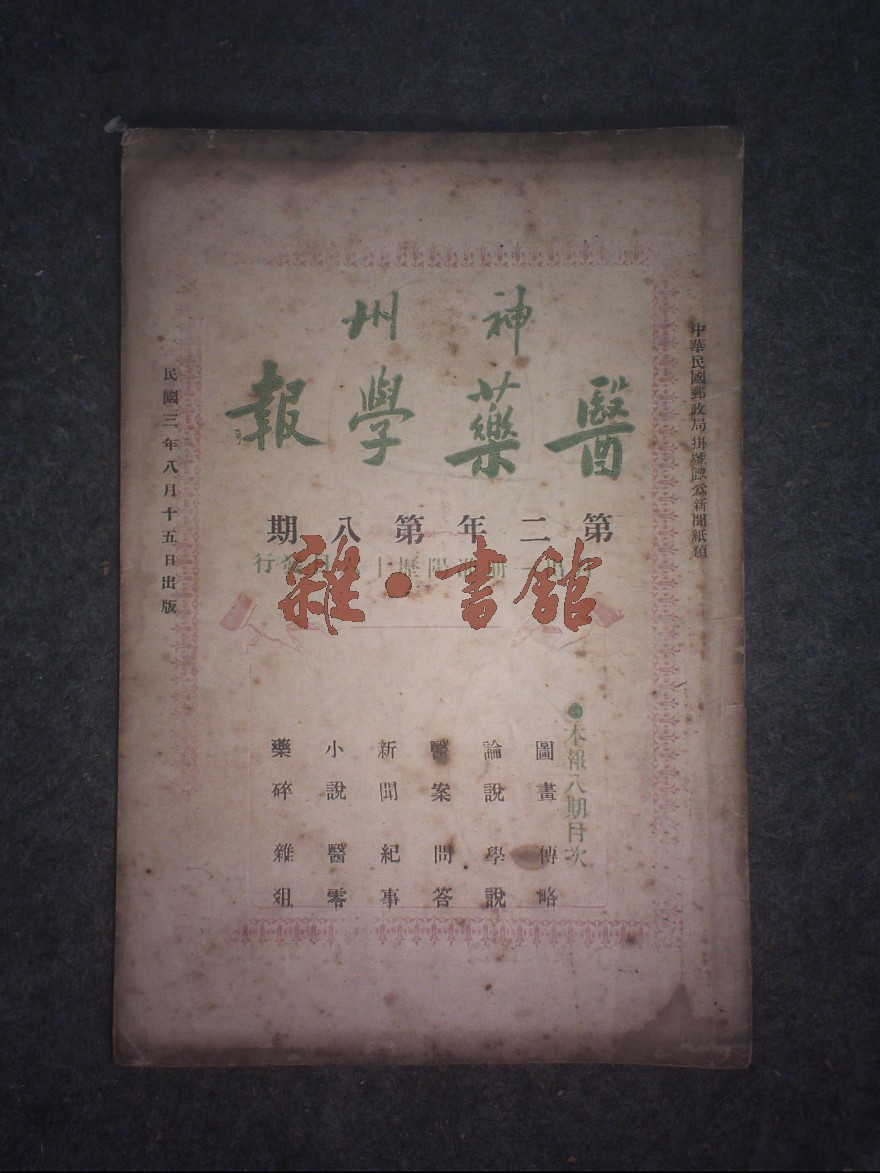 中華民國郵政局掛號認爲新聞紙類
神州
醫藥學報
第二年第八期
雜·書館
●本報八期目次
圖畫 傳略
論說 學說
醫案 問答
新聞 紀事
小說 醫零
藥碎 雜俎
民國三年八月十五日出版